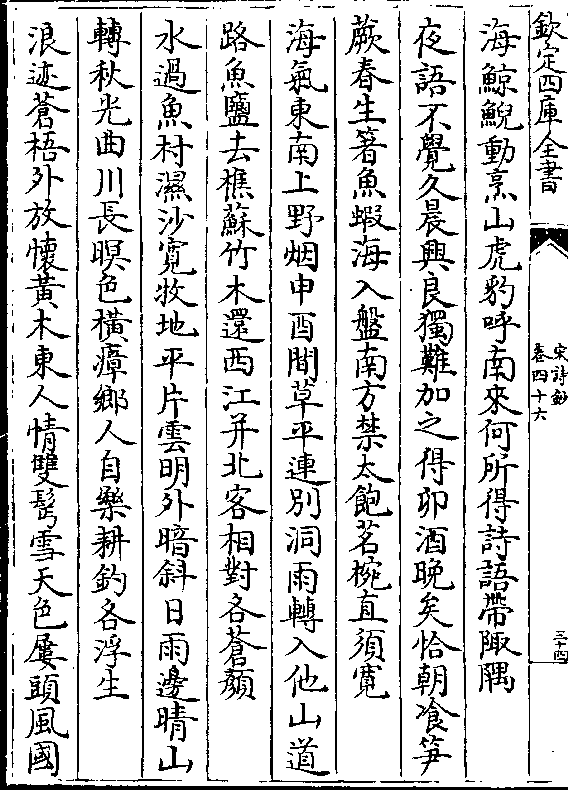 欽定四庫全書
宋詩鈔
卷四十六
三十四
海鯨鯢動烹山虎豹呼南來何所得詩語帶陬隅
夜語不覺久晨興良獨難加之得卯酒晚矣恰朝飡笋
蕨春生箸魚蝦海入盤南方禁太飽茗椀直須寛
海氣東南上野烟申酉間草平連別洞雨轉入他山道
路魚鹽去樵蘇竹木還西江并北客相對各蒼顔
水過魚村濕沙寛牧地平片雲明外暗斜日雨邊晴山
轉秋光曲川長暝色橫瘴鄉人自樂耕釣各浮生
浪迹蒼梧外放懷黃木東人情雙髩雪天色屢頭風國